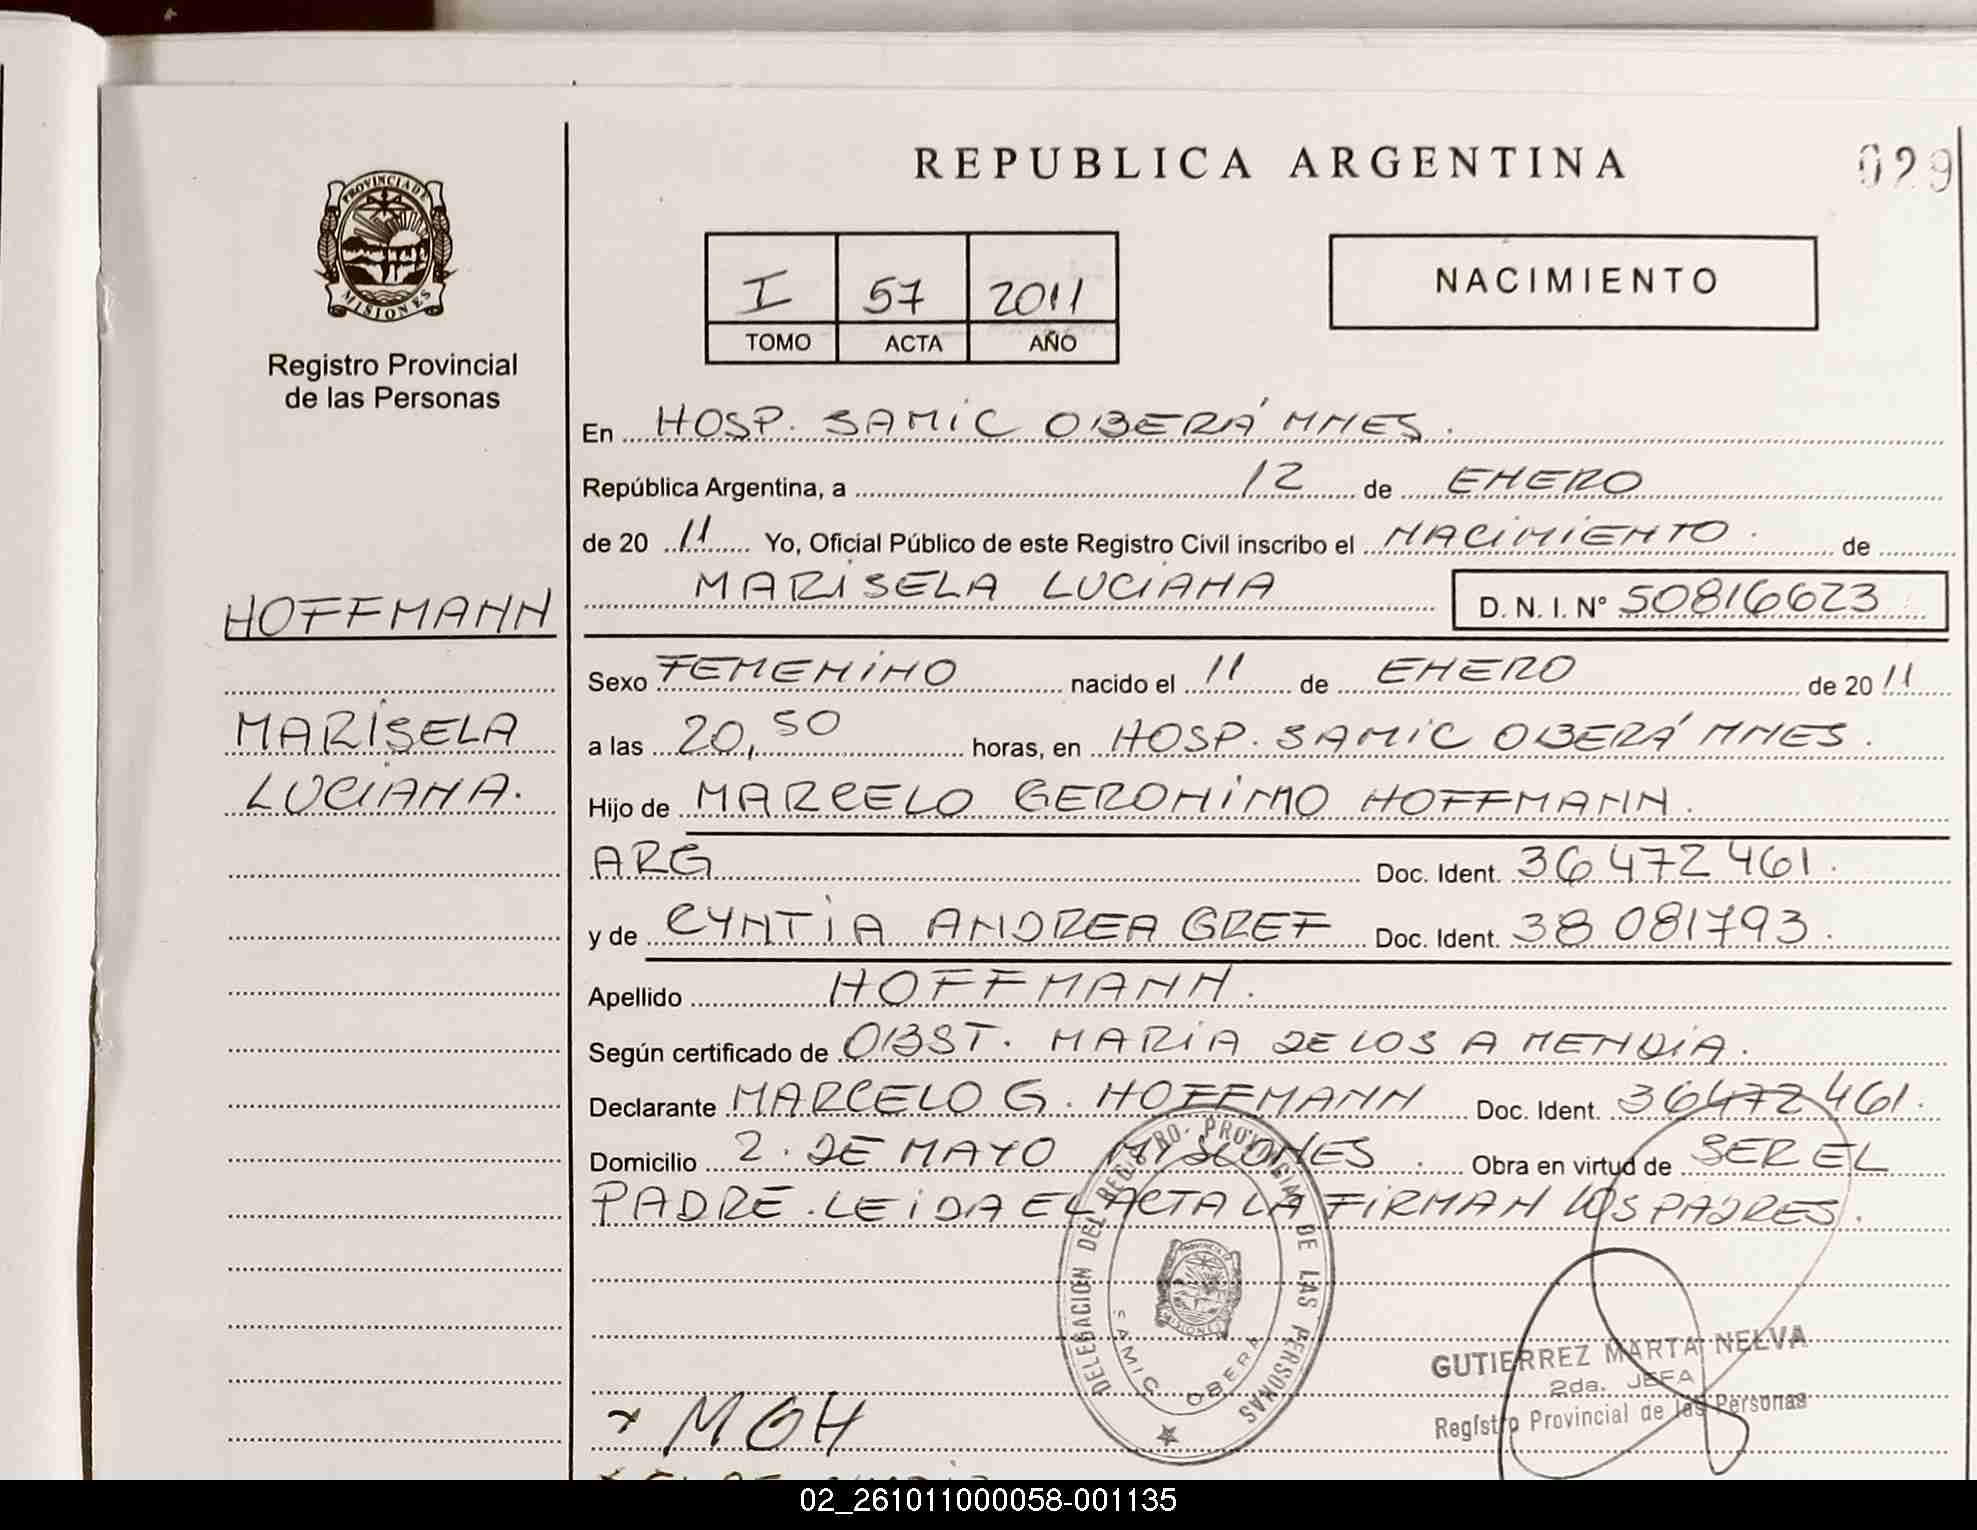 REPUBLICA ARGENTINA
029
PROVINCIA DE
MISIONES
Registro Provincial
de las Personas
I 57 2011
TOMO ACTA AÑO
NACIMIENTO
En HOSP. SAMIC OBERÁ MNES.
República Argentina, a 12 de ENERO
de 20 11 Yo, Oficial Público de este Registro Civil inscribo el NACIMIENTO. de
MARISELA LUCIANA D. N. I. N° 50816623
HOFFMANN
Sexo FEMENINO nacido el 11 de ENERO de 20 11
MARISELA
a las 20,50 horas, en HOSP. SAMIC OBERÁ MNES.
LUCIANA.
Hijo de MARCELO GERONIMO HOFFMANN.
ARG Doc. Ident. 36 472 461.
y de CYNTIA ANDREA GREF Doc. Ident. 38 081793.
Apellido HOFFMANN.
Según certificado de OBST. MARIA DE LOS A MENDIA.
Declarante MARCELO G. HOFFMANN Doc. Ident. 36472461.
Domicilio 2. DE MAYO MISIONES. Obra en virtud de SER EL
PADRE. LEIDA EL ACTA LA FIRMAN LOS PADRES.
DELEGACION DEL REGISTRO PROVINCIAL DE LAS PERSONAS
SAMIC OBERA
MISIONES
GUTIERREZ MARTA NELVA
2da. JEFA
Registro Provincial de las Personas
x MGH
02_261011000058-001135